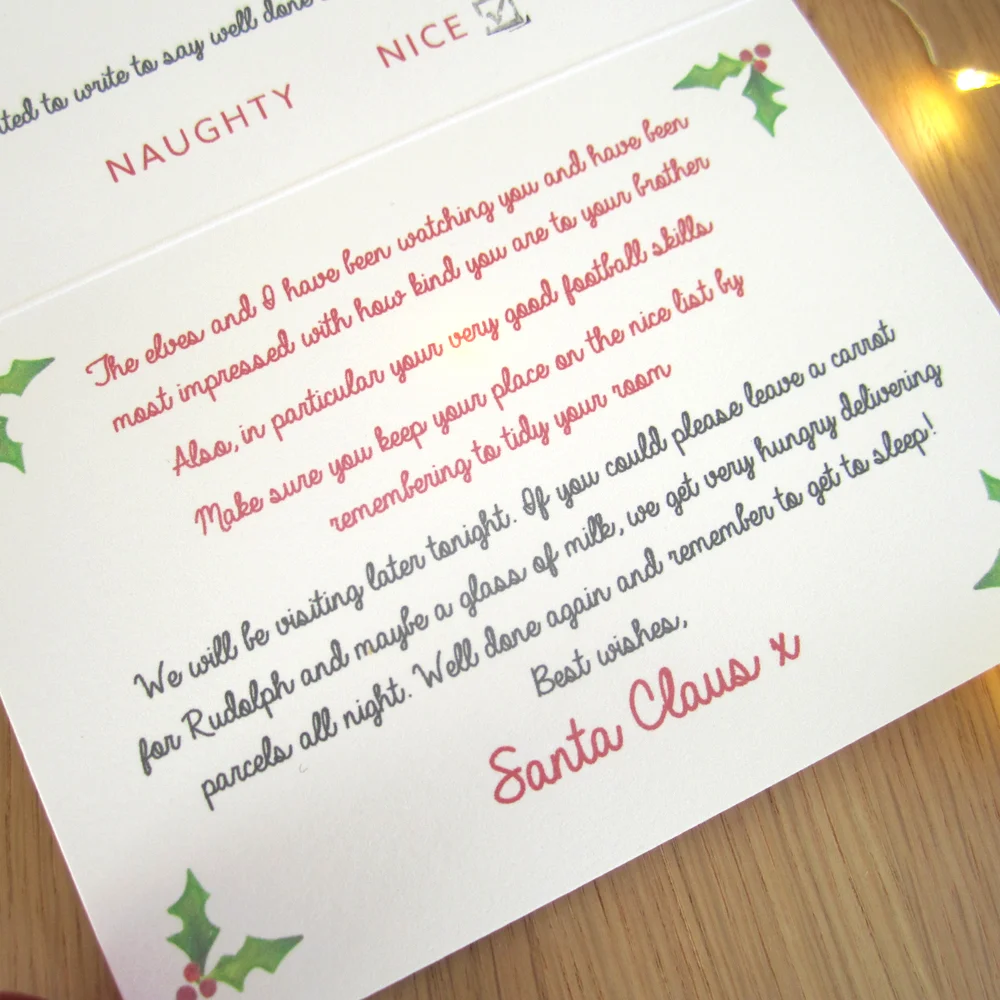 ted to write to say well done
NAUGHTY NICE
The elves and I have been watching you and have been
most impressed with how kind you are to your brother
Also, in particular your very good football skills
Make sure you keep your place on the nice list by
remembering to tidy your room
We will be visiting later tonight. If you could please leave a carrot
for Rudolph and maybe a glass of milk, we get very hungry delivering
parcels all night. Well done again and remember to get to sleep!
Best wishes,
Santa Claus x